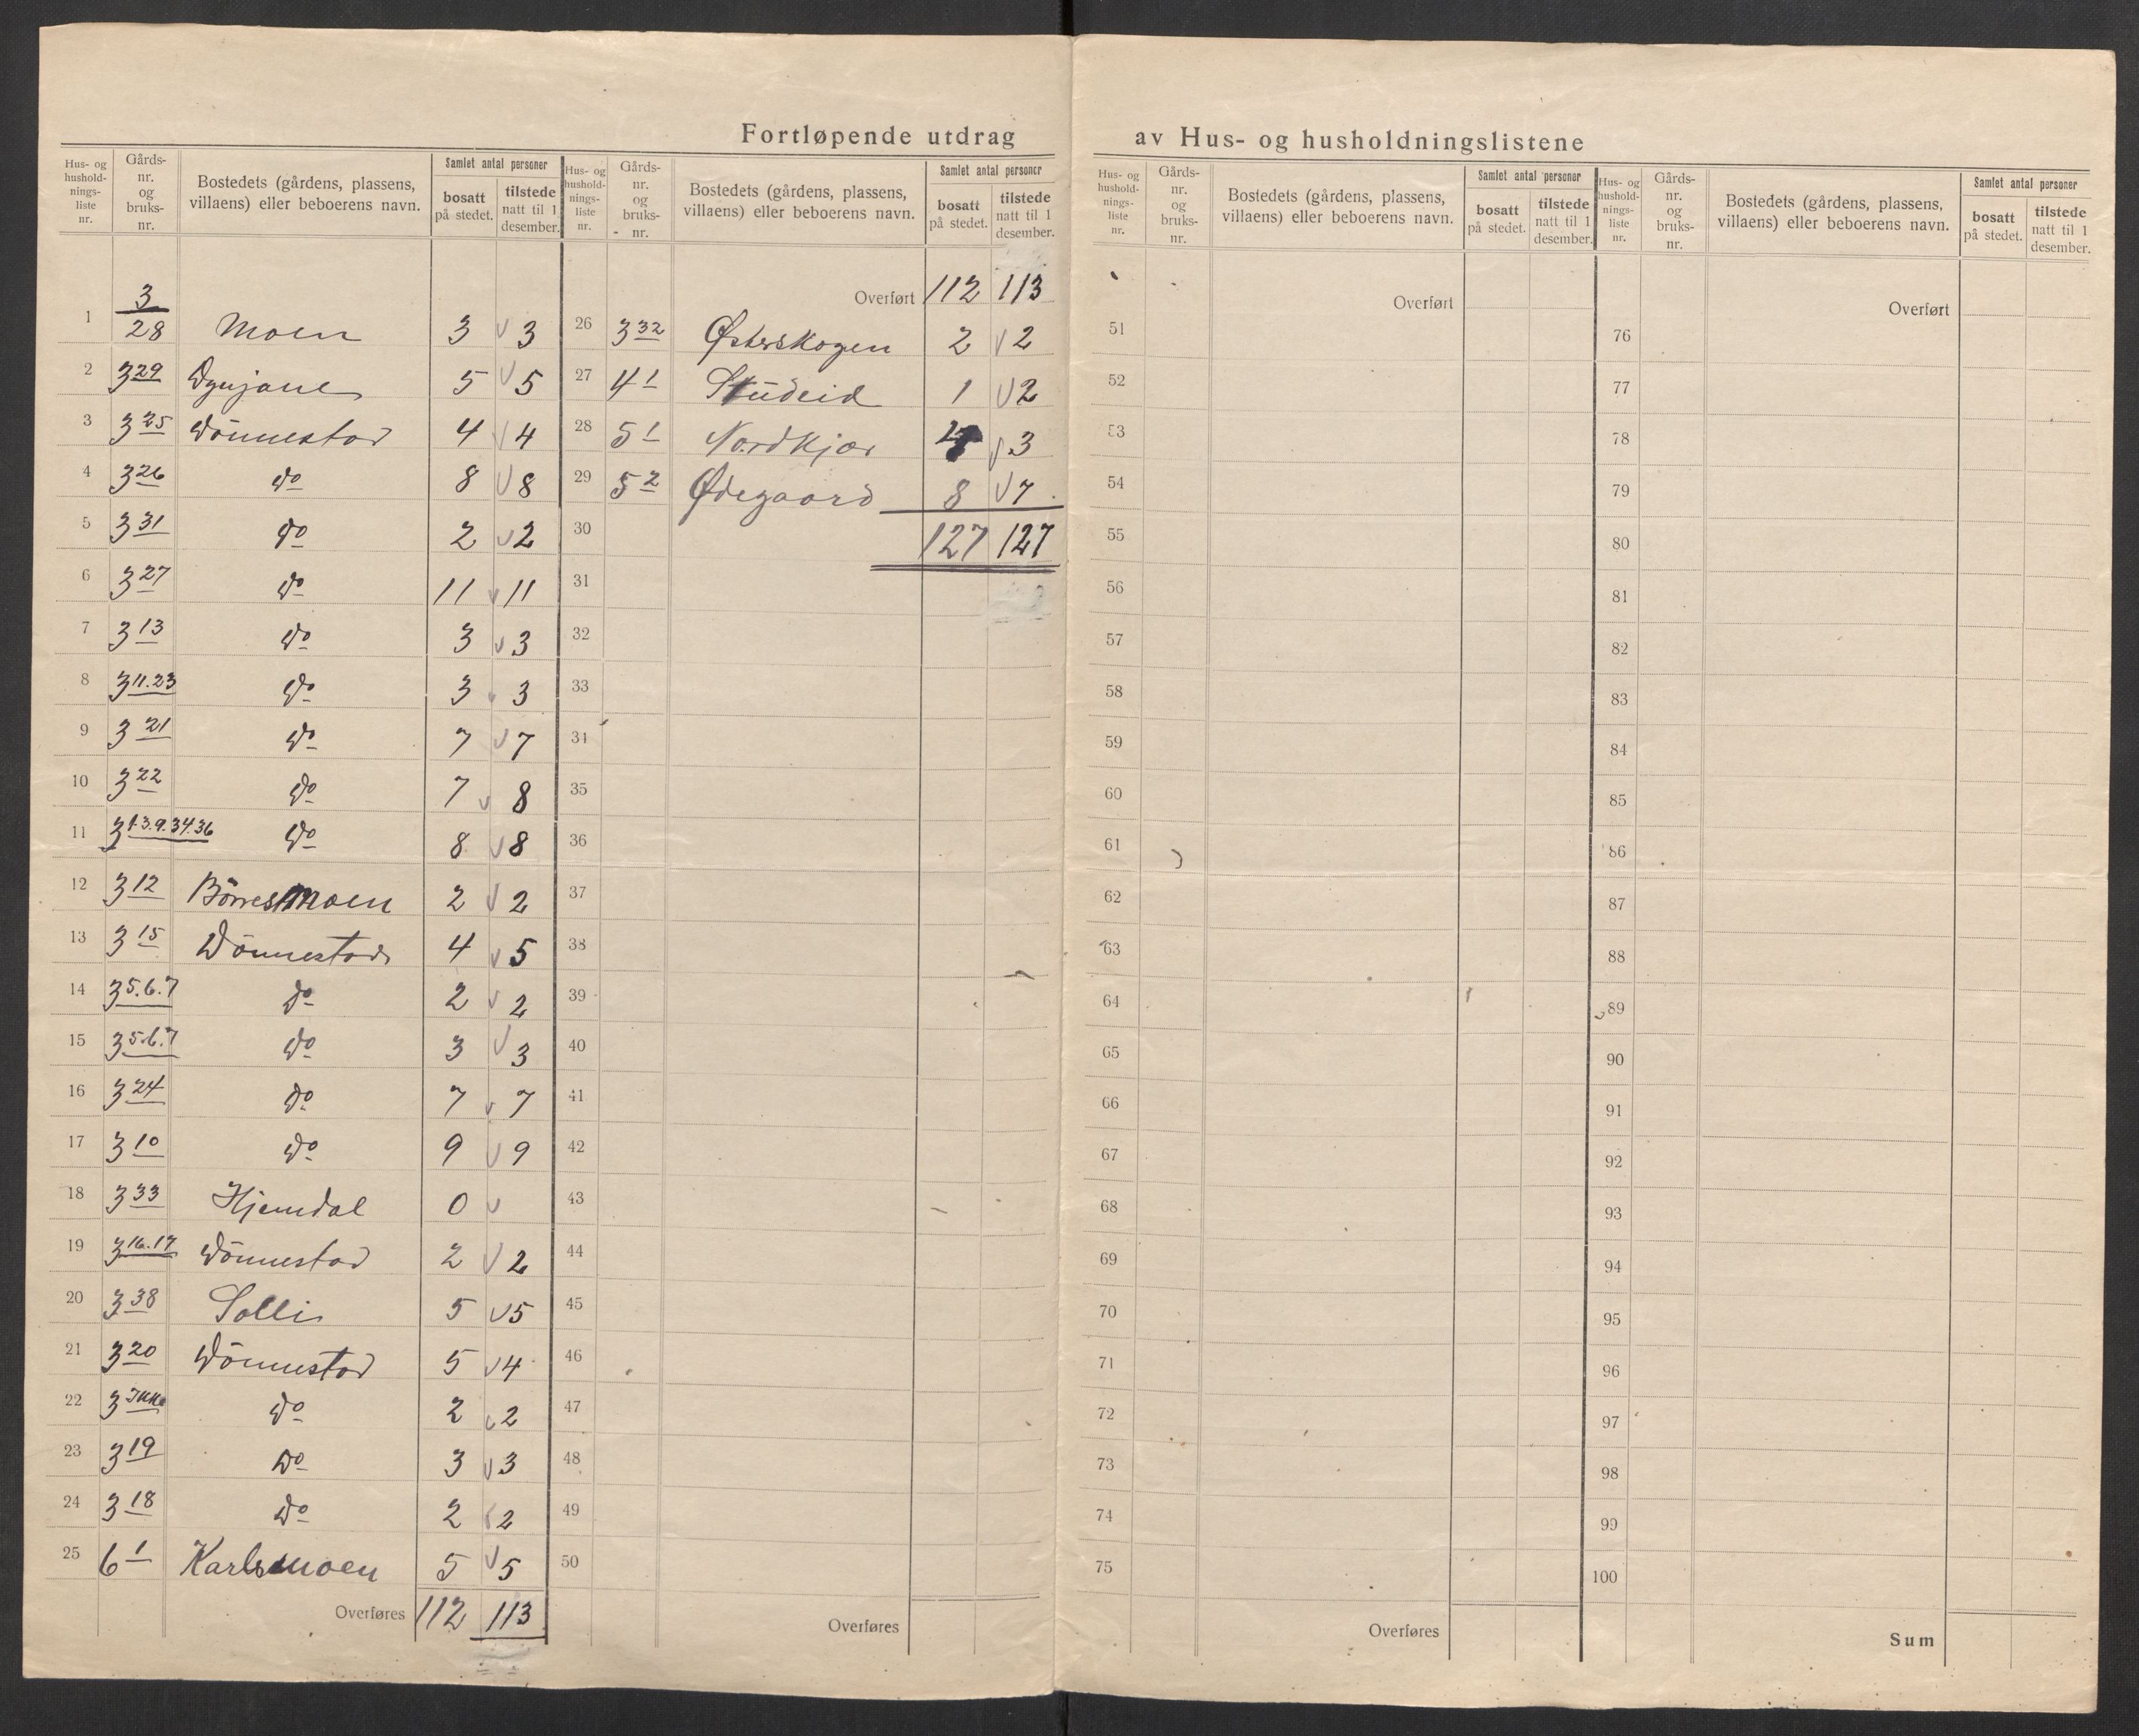 Fortløpende utdrag av Hus- og husholdningslistene
Hus- og husholdnings-liste nr. Gårds-nr. og bruks-nr. Bostedets (gårdens, plassens, villaens) eller beboerens navn. Samlet antal personer bosatt på stedet. tilstede natt til 1 desember.
1 3/28 Moen 3 v 3
2 3 29 5 v 5
3 3 25 Dönnestad 4 v 4
4 3 26 Do 8 v 8
5 3 31 Do 2 v 2
6 3 27 Do 11 v 11
7 3 13 Do 3 v 3
8 3 11.23 Do 3 v 3
9 3 21 Do 7 v 7
10 3 22 Do 7 v 8
11 3 1.3.9.34.36 Do 8 v 8
12 3 12 Börresmoen 2 v 2
13 3 15 Dönnestad 4 v 5
14 3 5.6.7 Do 2 v 2
15 3 5.6.7 Do 3 v 3
16 3 24 Do 7 v 7
17 3 10 Do 9 v 9
18 3 33 Hjemdal 0 v
19 3 16.17 Dönnestad 2 v 2
20 3 38 Solli 5 v 5
21 3 20 Dönnestad 5 v 4
22 3 Ikke Do 2 v 2
23 3 19 Do 3 v 3
24 3 18 Do 2 v 2
25 6 1 Karlsmoen 5 v 5
Overføres 112 113
Hus- og husholdnings-liste nr. Gårds-nr. og bruks-nr. Bostedets (gårdens, plassens, villaens) eller beboerens navn. Samlet antal personer bosatt på stedet. tilstede natt til 1 desember.
Overført 112 113
26 3 32 Østerskogen 2 v 2
27 4 1 Studeid 1 v 2
28 5 1 Nordkjær 4 v 3
29 5 2 Ødegaard 8 v 7
30 127 127
31
32
33
34
35
36
37
38
39
40
41
42
43
44
45
46
47
48
49
50
Overføres
Hus- og husholdnings-liste nr. Gårds-nr. og bruks-nr. Bostedets (gårdens, plassens, villaens) eller beboerens navn. Samlet antal personer bosatt på stedet. tilstede natt til 1 desember.
Overført
51
52
53
54
55
56
57
58
59
60
61
62
63
64
65
66
67
68
69
70
71
72
73
74
75
Overføres
Hus- og husholdnings-liste nr. Gårds-nr. og bruks-nr. Bostedets (gårdens, plassens, villaens) eller beboerens navn. Samlet antal personer bosatt på stedet. tilstede natt til 1 desember.
Overført
76
77
78
79
80
81
82
83
84
85
86
87
88
89
90
91
92
93
94
95
96
97
98
99
100
Sum